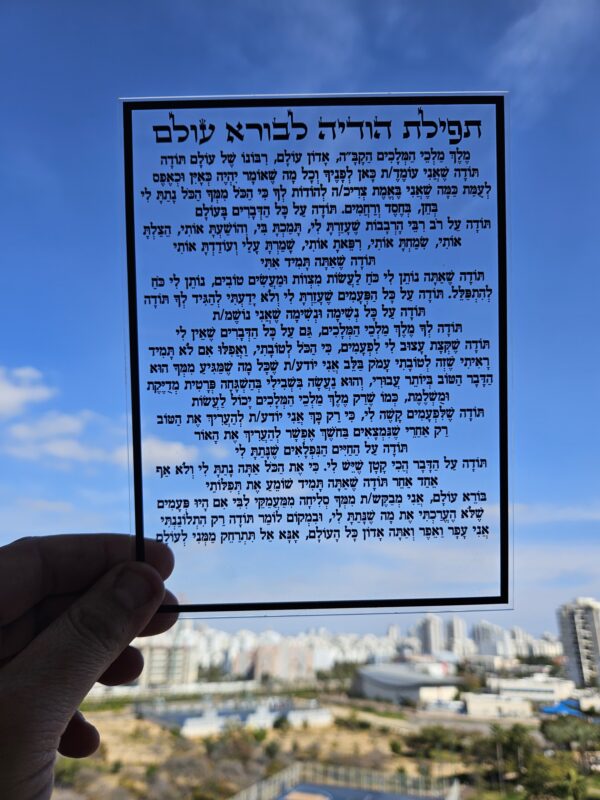 תפילת הודיה לבורא עולם
מֶלֶךְ מַלְכֵי הַמְּלָכִים הַקָּבָּ״ה, אָדוֹן עוֹלָם, רִבּוֹנוֹ שֶׁל עוֹלָם תּוֹדָה
תּוֹדָה שֶׁאֲנִי עוֹמֵד/ת כָּאן לְפָנֶיךָ וְכָל מַה שֶׁאוֹמַר יִהְיֶה כְּאַיִן וּכְאֶפֶס
לְעֻמַּת כַּמָּה שֶׁאֲנִי בֶּאֱמֶת צְרִיכ/ה לְהוֹדוֹת לְךָ כִּי הַכֹּל מִמְּךָ הַכֹּל נָתַתָּ לִי
בְּחֵן, בְּחֶסֶד וְרַחֲמִים. תּוֹדָה עַל כָּל הַדְּבָרִים בָּעוֹלָם
תּוֹדָה עַל רֹב רִבֵּי הָרְבָבוֹת שֶׁעָזַרְתָּ לִי, תָּמַכְתָּ בִּי, וְהוֹשַׁעְתָּ אוֹתִי, הִצַּלְתָּ
אוֹתִי, שִׂמַּחְתָּ אוֹתִי, רִפֵּאתָ אוֹתִי, שָׁמַרְתָּ עָלַי וְעוֹדַדְתָּ אוֹתִי
תּוֹדָה שֶׁאַתָּה תָּמִיד אִתִּי
תּוֹדָה שֶׁאַתָּה נוֹתֵן לִי כֹּחַ לַעֲשׂוֹת מִצְווֹת וּמַעֲשִׂים טוֹבִים, נוֹתֵן לִי כֹּחַ
לְהִתְפַּלֵּל. תּוֹדָה עַל כָּל הַפְּעָמִים שֶׁעָזַרְתָּ לִי וְלֹא יָדַעְתִּי לְהַגִּיד לְךָ תּוֹדָה
תּוֹדָה עַל כָּל נְשִׁימָה וּנְשִׁימָה שֶׁאֲנִי נוֹשֵׁמ/ת
תּוֹדָה לְךָ מֶלֶךְ מַלְכֵי הַמְּלָכִים, גַּם עַל כָּל הַדְּבָרִים שֶׁאֵין לִי
תּוֹדָה שֶׁקְּצָת עָצוּב לִי לִפְעָמִים, כִּי הַכֹּל לְטוֹבָתִי, וַאֲפִלּוּ אִם לֹא תָּמִיד
רָאִיתִי שֶׁזֶּה לְטוֹבָתִי עָמֹק בַּלֵּב אֲנִי יוֹדֵע/ת שֶׁכָּל מַה שֶּׁמַּגִּיעַ מִמְּךָ הוּא
הַדָּבָר הַטּוֹב בְּיוֹתֵר עֲבוּרִי, וְהוּא נַעֲשָׂה בִּשְׁבִילִי בְּהַשְׁגָּחָה פְּרָטִית מְדֻיֶּקֶת
וּמֻשְׁלֶמֶת, כְּמוֹ שֶׁרַק מֶלֶךְ מַלְכֵי הַמְּלָכִים יָכוֹל לַעֲשׂוֹת
תּוֹדָה שֶׁלִּפְעָמִים קָשֶׁה לִי, כִּי רַק כָּךְ אֲנִי יוֹדֵע/ת לְהַעֲרִיךְ אֶת הַטּוֹב
רַק אַחֲרֵי שֶׁנִּמְצָאִים בַּחֹשֶׁךְ אֶפְשָׁר לְהַעֲרִיךְ אֶת הָאוֹר
תּוֹדָה עַל הַחַיִּים הַנִּפְלָאִים שֶׁנָּתַתָּ לִי
תּוֹדָה עַל הַדָּבָר הֲכִי קָטָן שֶׁיֵּשׁ לִי. כִּי אֶת הַכֹּל אַתָּה נָתַתָּ לִי וְלֹא אַף
אֶחָד אַחֵר תּוֹדָה שֶׁאַתָּה תָּמִיד שׁוֹמֵעַ אֶת תְּפִלּוֹתַי
בּוֹרֵא עוֹלָם, אֲנִי מְבַקֵּשׁ/ת מִמְּךָ סְלִיחָה מִמַּעֲמַקֵּי לִבִּי אִם הָיוּ פְּעָמִים
שֶׁלֹּא הֶעֱרַכְתִּי אֶת מַה שֶּׁנָּתַתָּ לִי, וּבִמְקוֹם לוֹמַר תּוֹדָה רַק הִתְלוֹנַנְתִּי
אֲנִי עָפָר וָאֵפֶר וְאַתָּה אָדוֹן כָּל הָעוֹלָם, אָנָּא אַל תִּתְרַחֵק מִמֶּנִּי לְעוֹלָם